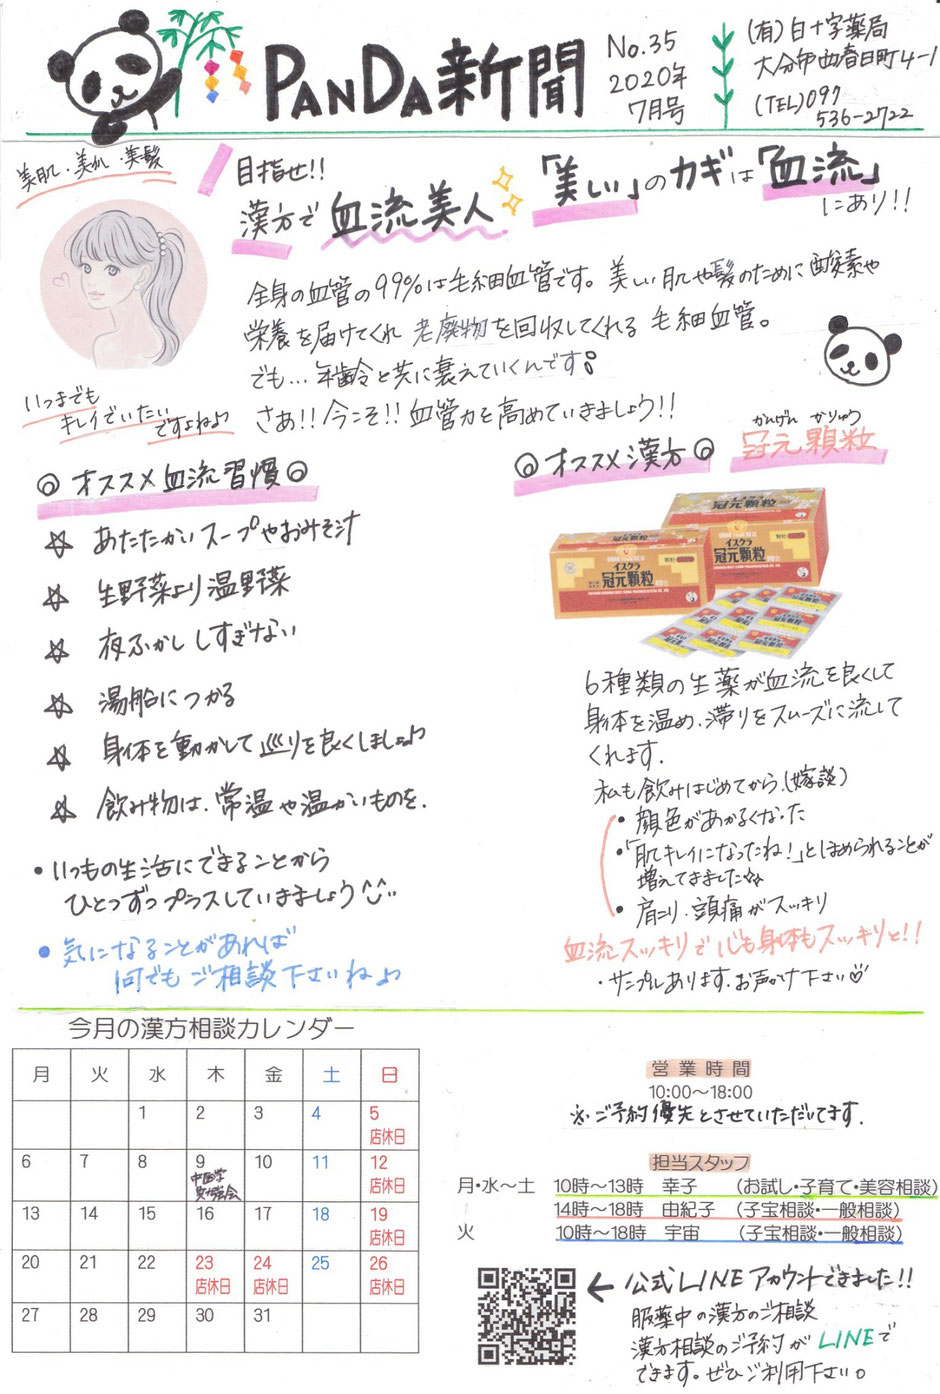 PANDA新聞
No.35
2020年
7月号
(有)白十字薬局
大分市西春日町4-1
(TEL)097
536-2722
美肌・美爪・美髪
目指せ!!
漢方で血流美人
「美しい」のカギは「血流」
にあり!!
全身の血管の99%は毛細血管です。美しい肌や髪のために酸素や
栄養を届けてくれ老廃物を回収してくれる毛細血管。
でも…年齢と共に衰えていくんです
さあ!!今こそ!!血管力を高めていきましょう!!
いつまでも
キレイでいたい
ですよね♪
◎オススメ血流習慣◎
☆あたたかいスープやおみそ汁
☆生野菜より温野菜
☆夜ふかししすぎない
☆湯船につかる
☆身体を動かして巡りを良くしましょ♪
☆飲み物は、常温や温かいものを。
・いつもの生活にできることから
ひとつずつプラスしていきましょう^^
・気になることがあれば
何でもご相談下さいね♪
◎オススメ漢方◎
かんげん かりゅう
冠元顆粒
イスクラ
冠元顆粒
イスクラ
冠元顆粒
6種類の生薬が血流を良くして
身体を温め、滞りをスムーズに流して
くれます。
私も飲みはじめてから、(嫁談)
・顔色があかるくなった
・「肌キレイになったね!」とほめられることが
増えてきました☆☆
・肩こり・頭痛がスッキリ
血流スッキリで心も身体もスッキリと!!
・サンプルあります。お声かけ下さい♡
今月の漢方相談カレンダー
月 火 水 木 金 土 日
1 2 3 4 5
店休日
6 7 8 9 10 11 12
中医学
勉強会
店休日
13 14 15 16 17 18 19
店休日
20 21 22 23 24 25 26
店休日 店休日 店休日
27 28 29 30 31
営業時間
10:00〜18:00
※ご予約優先とさせていただいてます。
担当スタッフ
月・水〜土 10時〜13時 幸子 (お試し・子育て・美容相談)
14時〜18時 由紀子 (子宝相談・一般相談)
火 10時〜18時 宇宙 (子宝相談・一般相談)
←公式LINEアカウントできました!!
服薬中の漢方のご相談
漢方相談のご予約がLINEで
できます。ぜひご利用下さい。